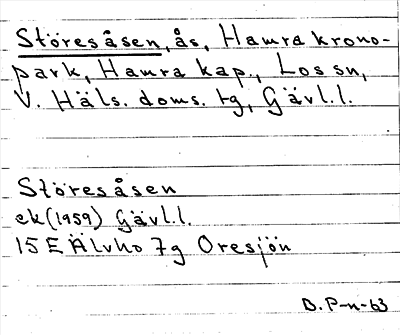 Störesåsen, ås, Hamra krono-
park, Hamra kap., Los sn,
V. Häls. doms. tg, Gävl.l.
Störesåsen
ek (1959) Gävl.l.
15 E Älvho 7g Oresjön
B. P-n-63